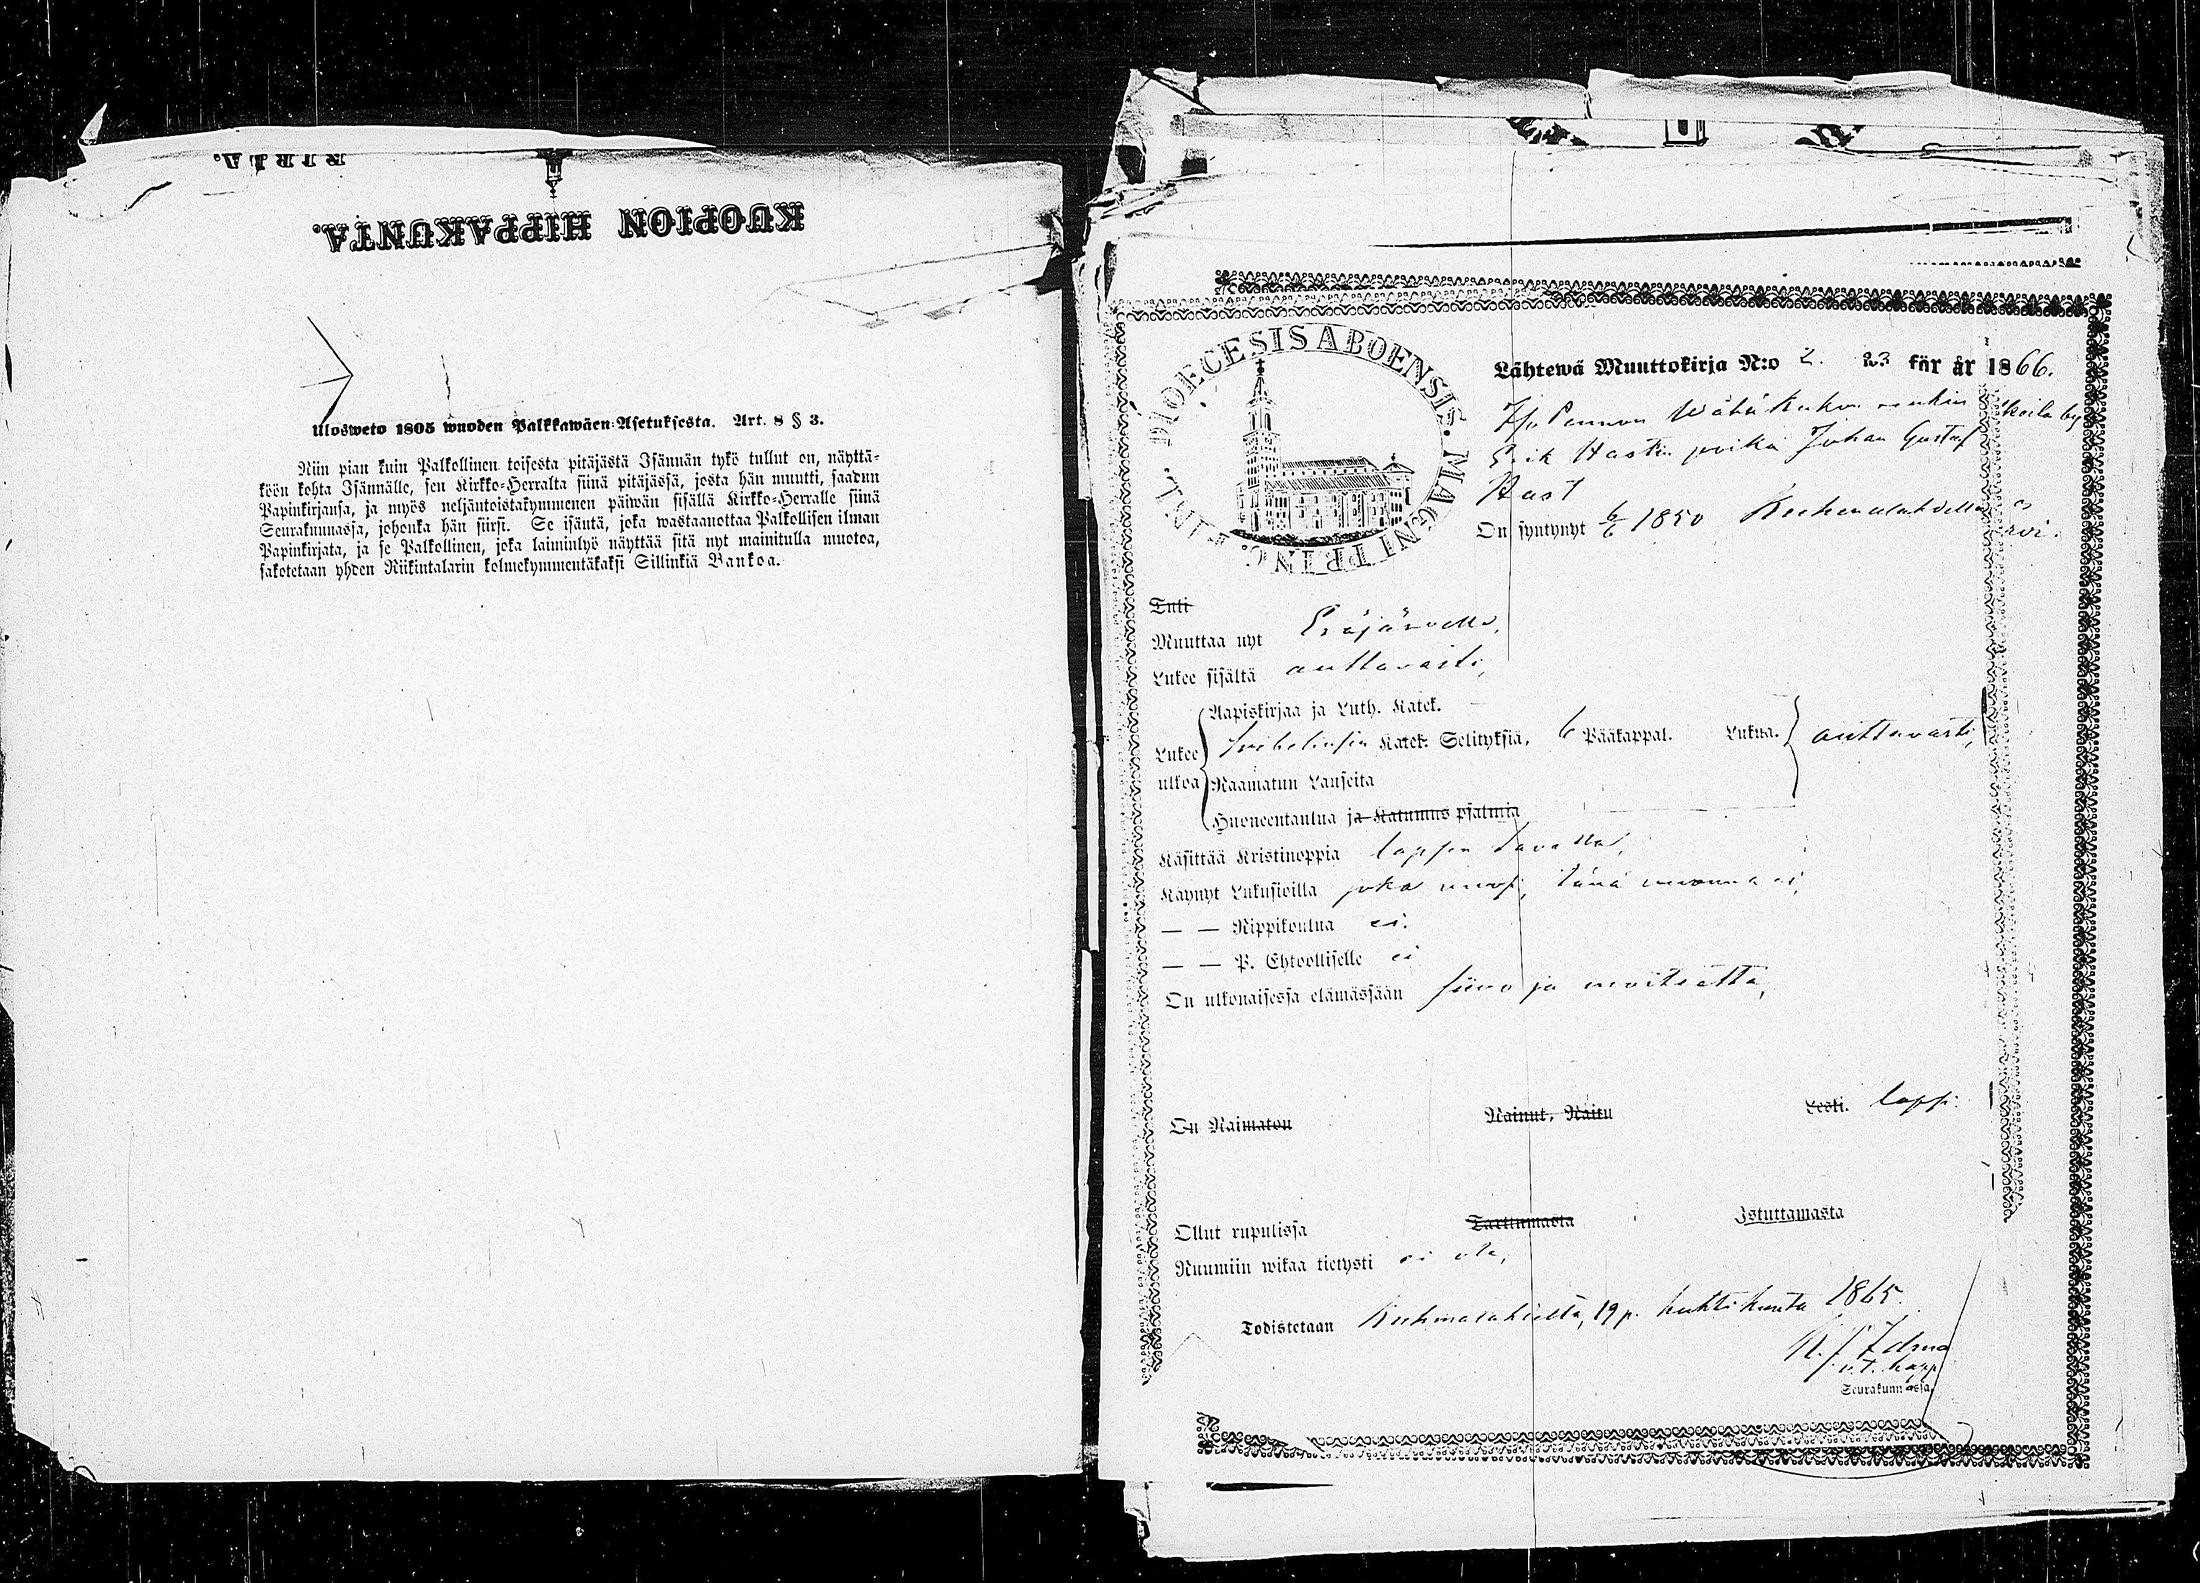 KIRJA.
KUOPION HIPPAKUNTA.
Ulosweto 1805 wuoden Palkkawäen-Asetuksesta. Art. 8 § 3.
Niin pian kuin Palkollinen toisesta pitäjästä Isännän tykö tullut on, näyttä-
köön kohta Isännälle, sen Kirkko-Herralta siinä pitäjässä, josta hän muutti, saadun
Papinkirjansa, ja myös neljäntoistakymmenen päiwän sisällä Kirkko-Herralle siinä
Seurakunnassa, johonka hän siirsi. Se isäntä, joka wastaanottaa Palkollisen ilman
Papinkirjata, ja se Palkollinen, joka laiminlyö näyttää sitä nyt mainitulla muotoa,
sakotetaan yhden Riikintalarin kolmekymmentäkaksi Sillinkiä Bankoa.
DIOECESIS ABOENSIS. MAGNI PRINC. FINL.
Lähtewä Muuttokirja N:o 2. 23 för år 1866.
Erik Hastin poika Johan Gustaf
Hast
On syntynyt 6/6 1850 Kuhmalahdella
Tuli
Muuttaa nyt Eräjärvelle,
Lukee sisältä auttavasti,
Aapiskirjaa ja Luth. Katek.
Lukee Svebeliusen Katek. Selityksiä, 6 Pääkappal. Lukua. auttavasti,
ulkoa Raamatun Lauseita
Huoneentaulua ja Katumus psalmia
Käsittää Kristinoppia lapsen tavalla,
Käynyt Lukusioilla joka vuosi, tänä vuonna ei,
— — Rippikoulua ei.
— — P. Ehtoolliselle ei
On ulkonaisessa elämässään siivo ja moiteetta,
On Naimaton Nainut, Naitu Leski. lapsi.
Ollut rupulissa Tarttumasta Istuttamasta
Ruumiin wikaa tietysti ei ole,
Todistetaan Kuhmalahdelta, 19 p. huhtikuuta 1865.
v.t. kapp.
Seurakunnassa.